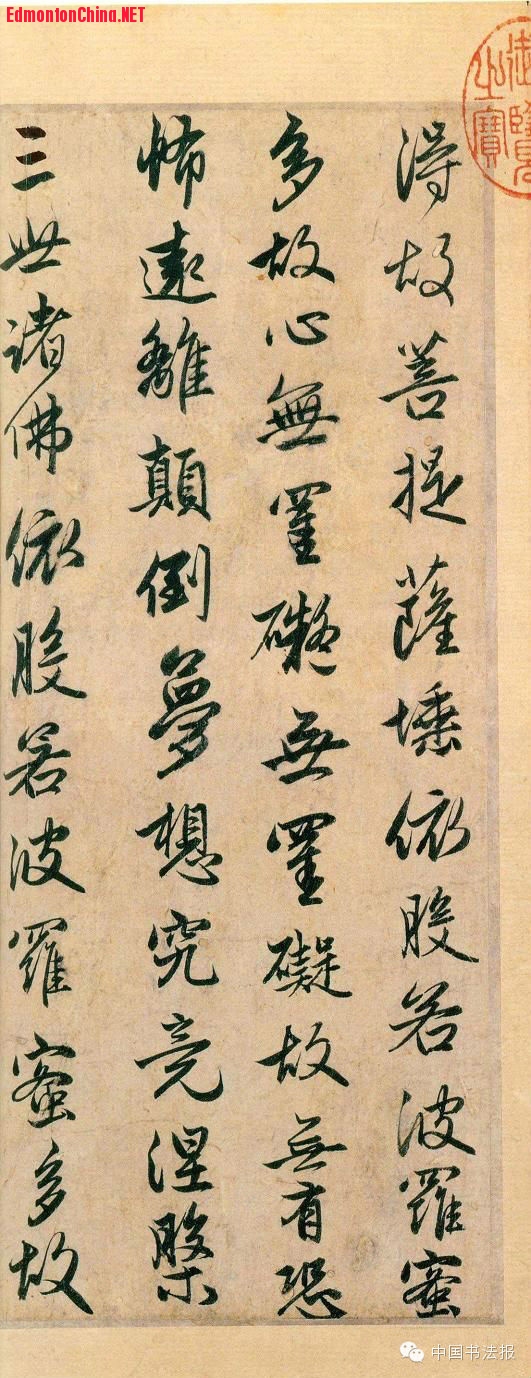 EdmontonChina.NET
御覽之寶
得故菩提薩埵依般若波羅蜜
多故心無罣礙無罣礙故無有恐
怖遠離顛倒夢想究竟涅槃
三世諸佛依般若波羅蜜多故
中国书法报